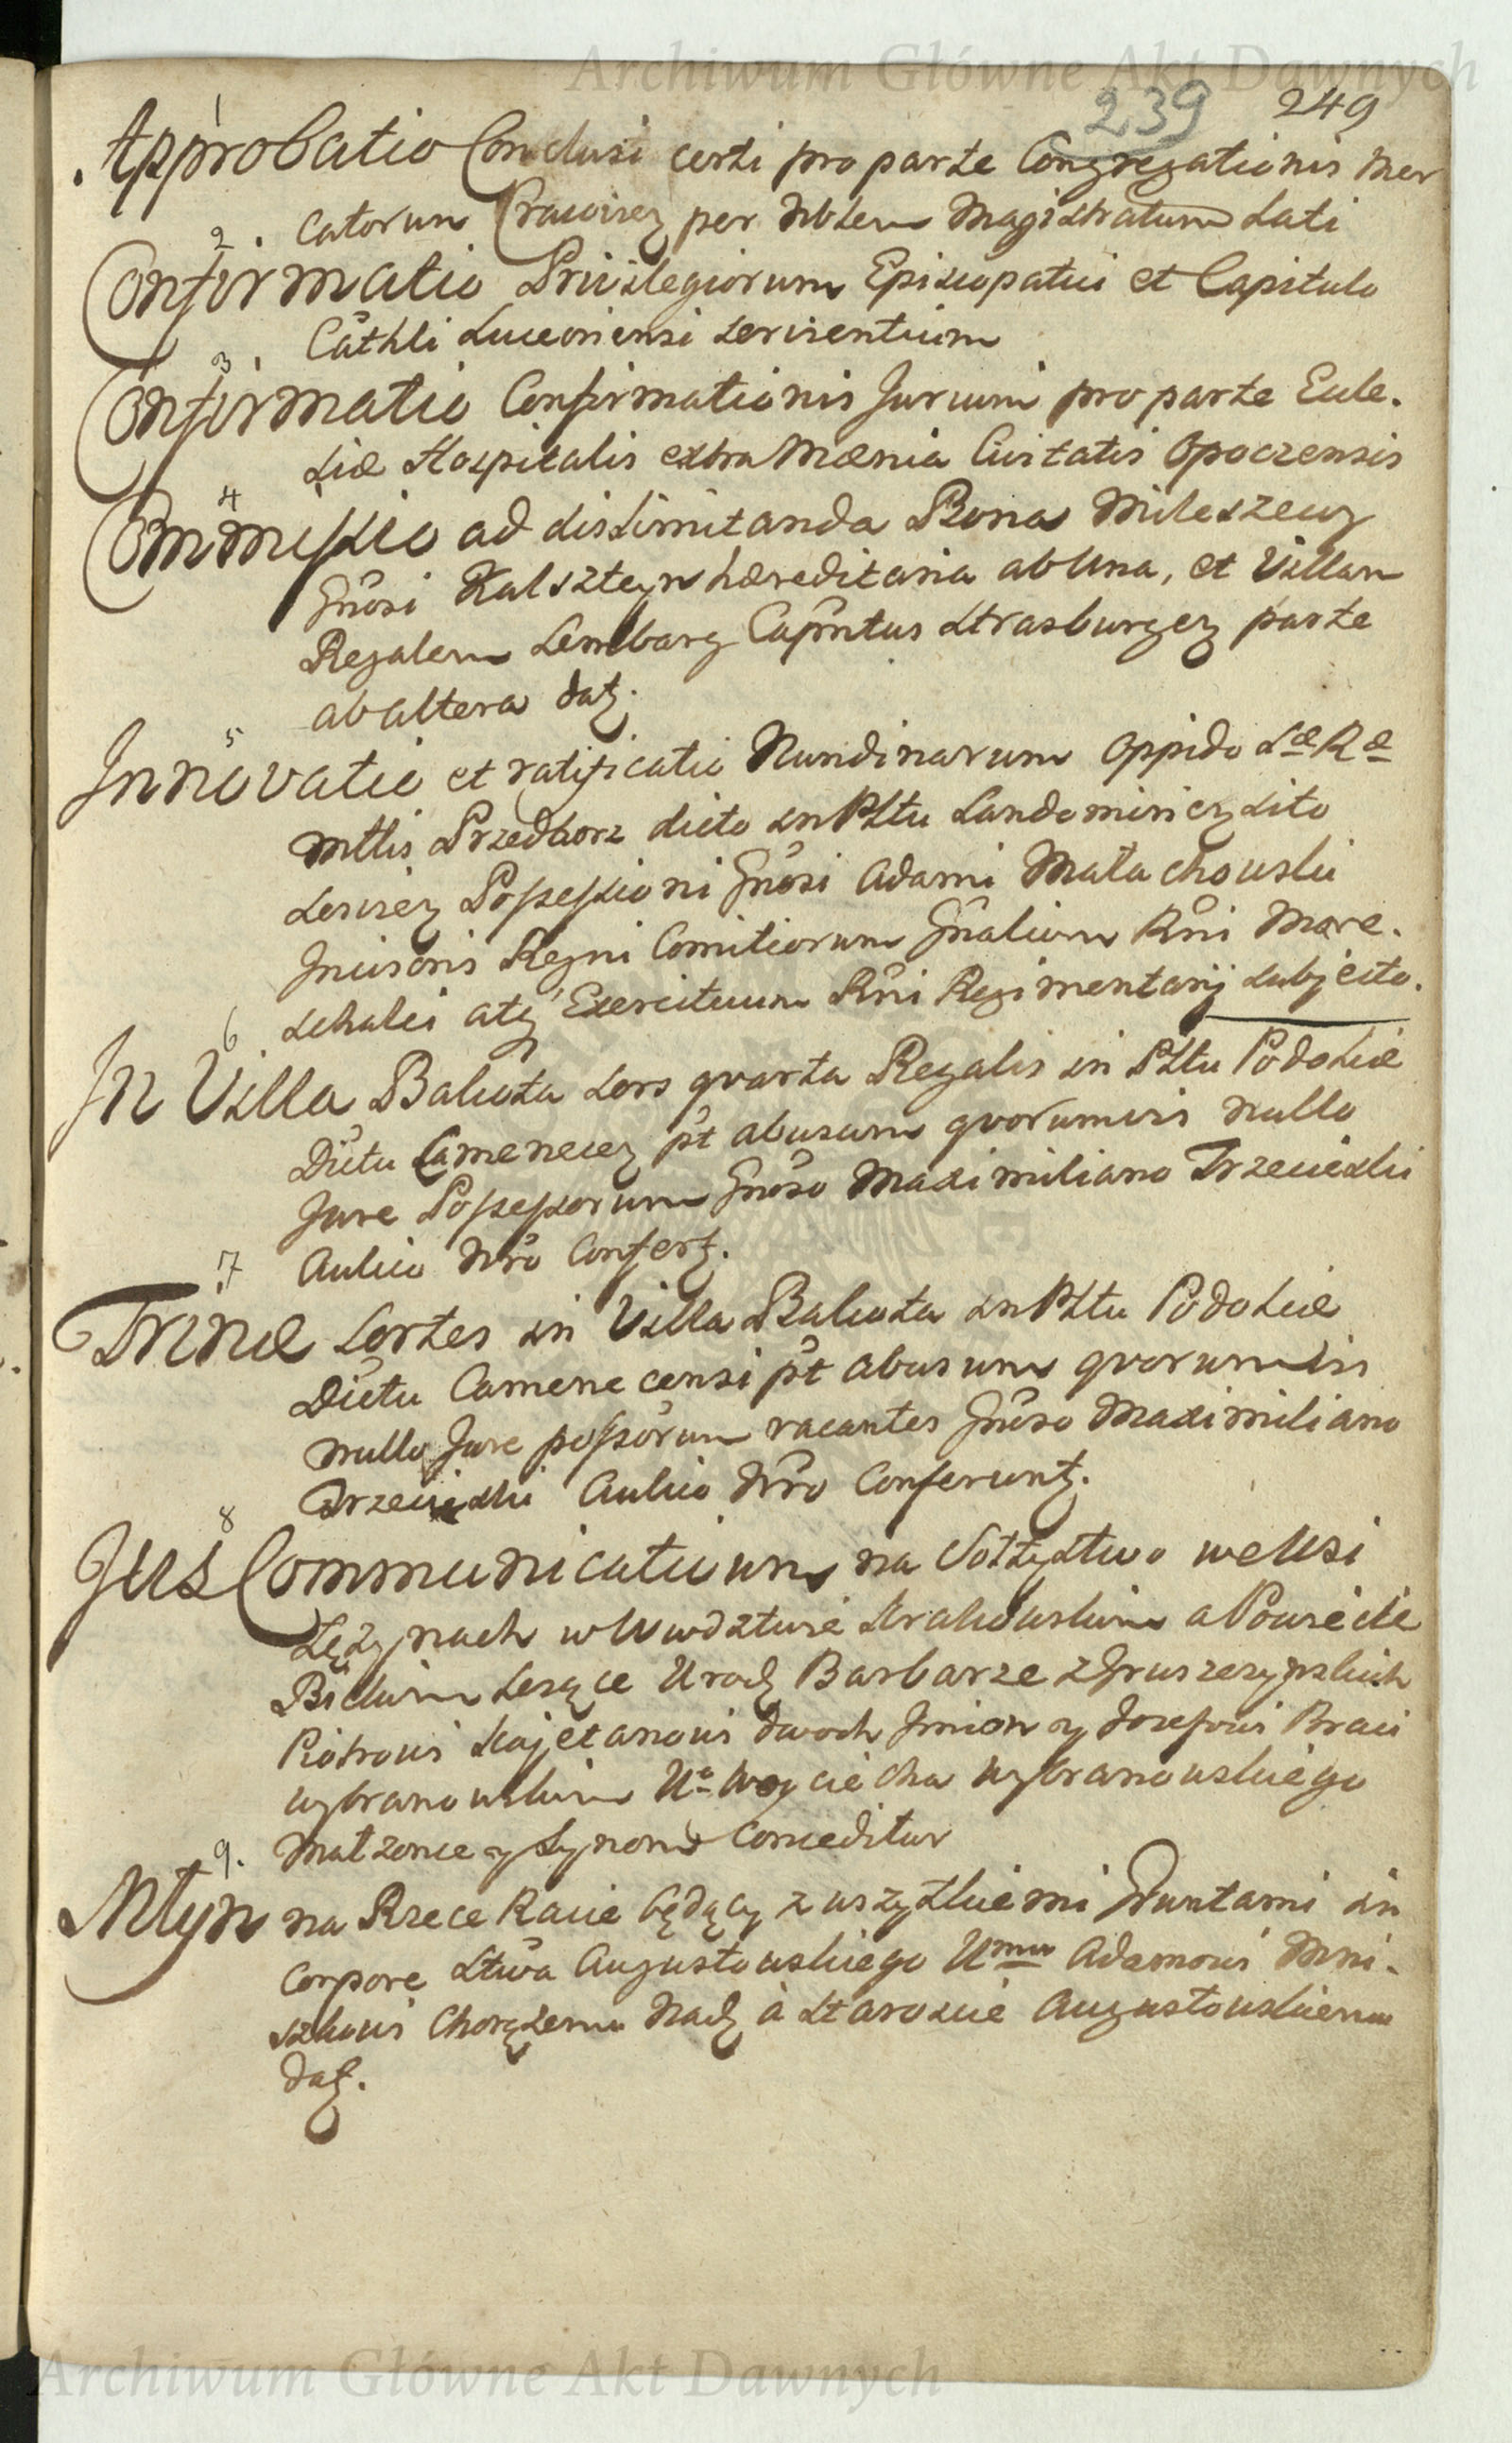 Archiwum Główne Akt Dawnych
239 249
1
Approbatio Conclusi certi pro parte Congregationis Mer
catorum Cracovien per Nblem Magistratum Lati
2.
Confirmatio Privilegiorum Episcopatui et Capitulo
Cathli Luceoriensi servientium
3.
Confirmatio Confirmationis Jurium pro parte Eccle.
siæ Hospitalis extra Mænia Civitatis Opoczensis
4
Commissio ad dislimitanda Bona Mileszewy
Gnosi Kalszteyn hæreditaria ab Una, et Villam
Regalem Lembarg Capntus Strasburgen parte
ab altera datz.
5
Innovatio et ratificatio Nundinarum Oppido Sæ Ræ
Mttis Przedborz dicto in Pltu Sandomirien sito
Possessioni Gnosi Adami Małachowski
Incisoris Regni Comitiorum Gnalium Rni Mare.
schalci atq Exercituum Rni Regimentarij subjecto.
6
In Villa Bakota sors qvarta Regalis in Pltu Podoliæ
Dictu Camenecen pt abusum qvorumvis nullo
Jure Possessorum Gnoso Maximiliano Trzecieski
Aulico Nro Confertz.
7
Trinæ Sortes in Villa Bakota in Pltu Podoliæ
Dictu Camenecensi pt abusum qvorumvis
nullo Jure possorum vacantes Gnoso Maximiliano
Trzecieski Aulico Nro Conferuntz.
8
Jus Communicativum na Sołtystwo we Wsi
Łężynach w Wwdztwie Krakowskim a Powiecie
Bieckim leżące Urodz Barbarze z Gruszczynskich
Piotrowi Kajetanowi dwoch Imion y Jozefowi Braci
Wybranowskim Uo Woyciecha Wybranowskiego
Małzonce y Synom Conceditur
9.
Młyn na Rzece Racie będący z wszytkiemi Gruntami in
Corpore Stwa Augustowskiego Umu Adamowi Mni-
szkowi Chorążemu Nadz a Staroscie Augustowskiemu
datz.
Archiwum Główne Akt Dawnych